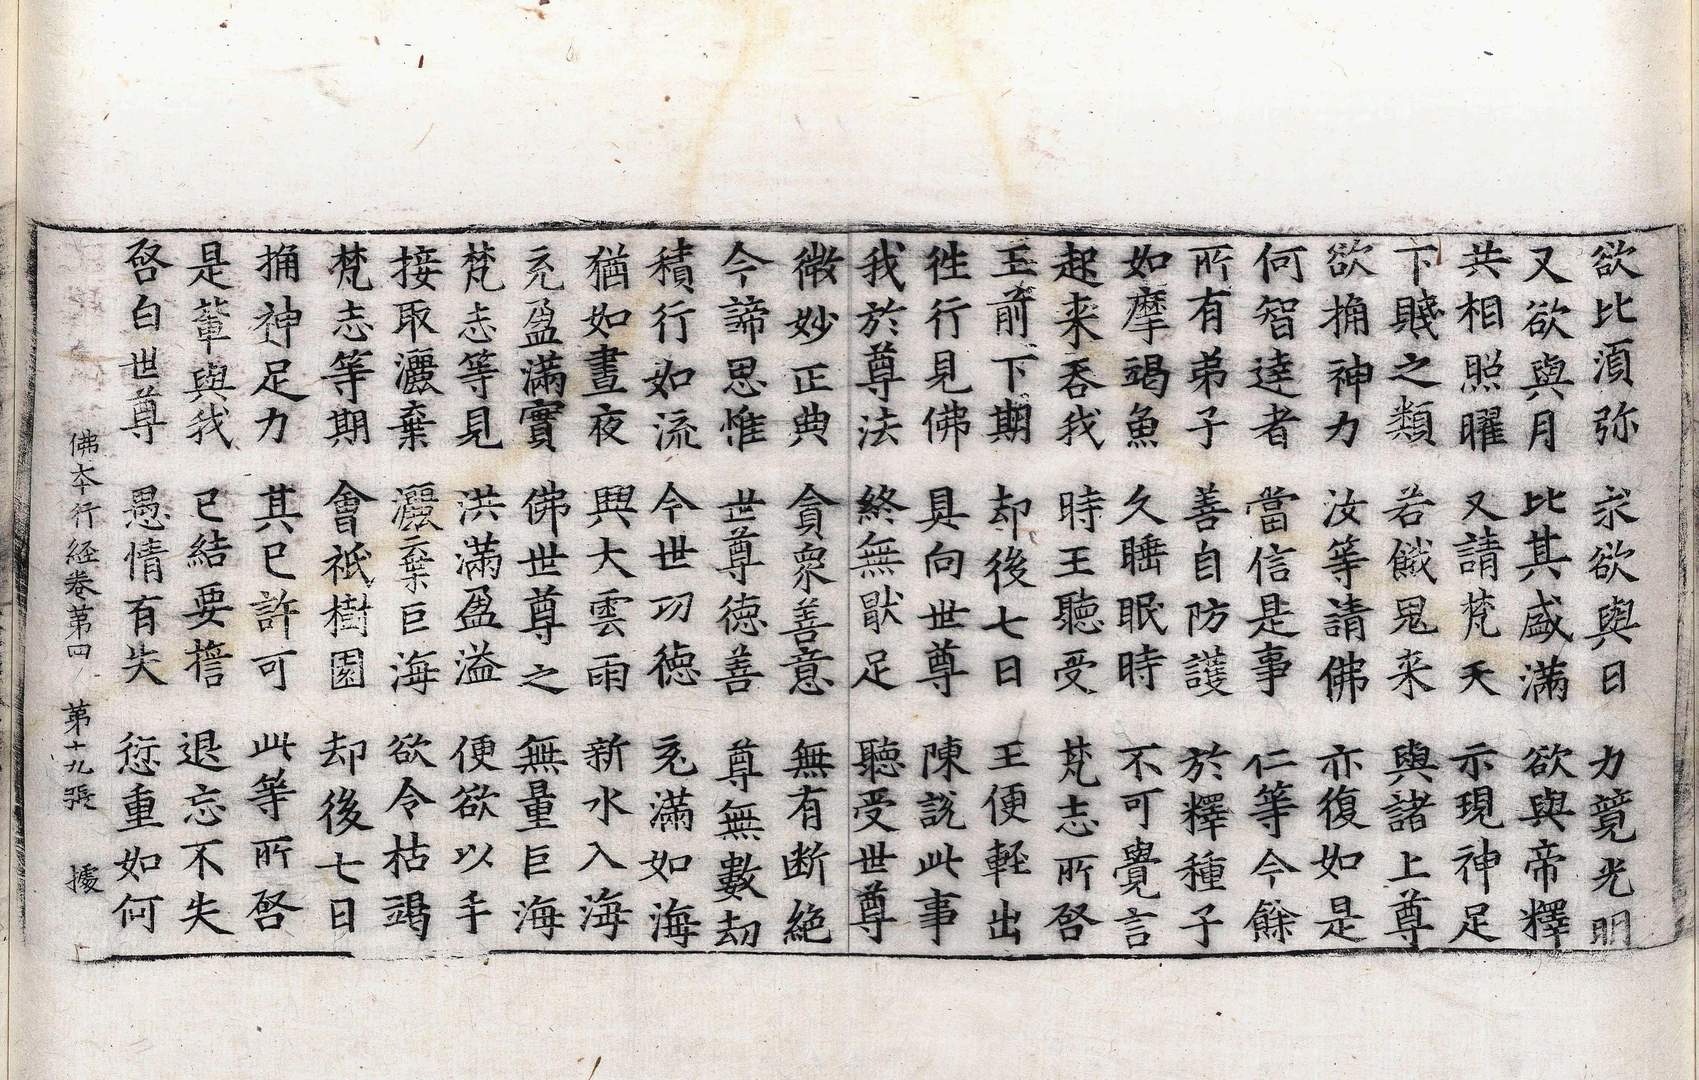 欲比湏弥 求欲與日 力競光明
又欲與月 比其盛滿 欲與帝釋
共相照曜 又請梵天 示現神足
下賤之類 若餓鬼来 與諸上尊
欲捔神力 汝等請佛 亦復如是
何智達者 當信是事 仁等今餘
所有弟子 善自防護 於釋種子
如摩竭魚 久睡眠時 不可覺言
起来吞我 時王聽受 梵志所啓
王前下期 却後七日 王便輕出
往行見佛 具向世尊 陳說此事
我於尊法 終無猒足 聽受世尊
微妙正典 貪衆善意 無有断絶
今諦思惟 世尊德善 尊無數劫
積行如流 今世功德 充滿如海
猶如晝夜 興大雲雨 新水入海
充盈滿實 佛世尊之 無量巨海
梵志等見 洪滿盈溢 便欲以手
接取灑棄 灑棄巨海 欲令枯竭
梵志等期 會祇樹園 却後七日
捔神足力 其已許可 此等所啓
是輩與我 已結要誓 退忘不失
啓白世尊 愚情有失 愆重如何
佛本行経卷第四 第十九張 㩀